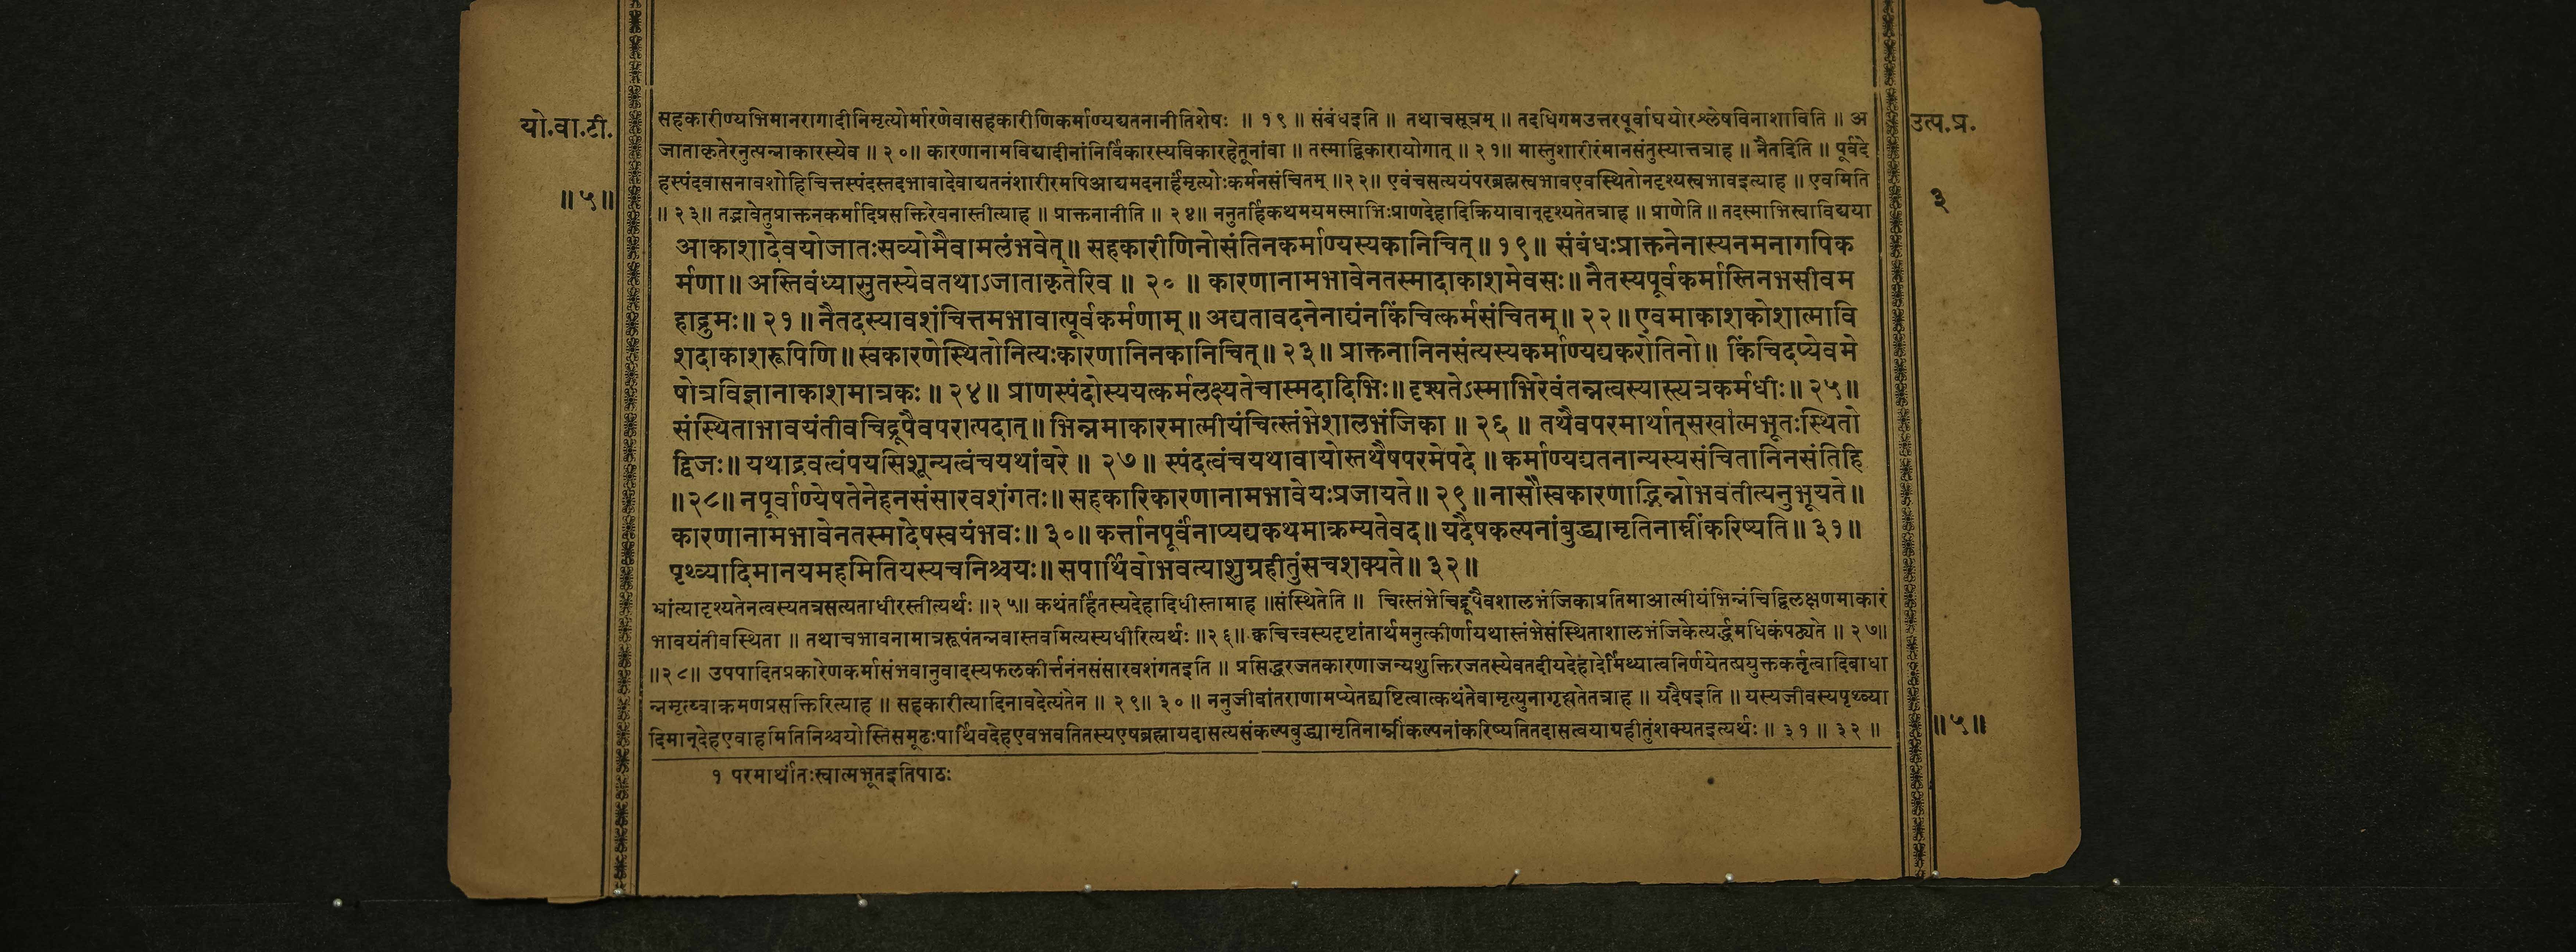 यो.वा.टी.
॥५॥
उत्प.प्र.
३
सहकारीण्यभिमानरागादीनिमृत्योर्मारणेवासहकारीणिकर्माण्यद्यतनानीतिशेषः ॥ १९ ॥ संबंधइति ॥ तथाचसूत्रम् ॥ तदधिगमउत्तरपूर्वाघयोरश्लेषविनाशाविति ॥ अ
जाताकृतेरनुत्पन्नाकारस्येव ॥ २० ॥ कारणानामविद्यादीनांनिर्विकारस्यविकारहेतूनांवा ॥ तस्माद्विकारायोगात् ॥ २१ ॥ मास्तुशारीरंमानसंतुस्यात्तत्राह ॥ नैतदिति ॥ पूर्वदे
हस्पंदवासनावशोहिचित्तस्पंदस्तदभावादेवाद्यतनंशारीरमपिआद्यमदनार्हंमृत्योःकर्मनसंचितम् ॥२२॥ एवंचसत्ययंपरब्रह्मस्वभावएवस्थितोनदृश्यस्वभावइत्याह ॥ एवमिति
॥ २३॥ तद्भावेतुप्राक्तनकर्मादिप्रसक्तिरेवनास्तीत्याह ॥ प्राक्तनानीति ॥ २४॥ ननुतर्हिकथमयमस्माभिःप्राणदेहादिक्रियावान्दृश्यतेतत्राह ॥ प्राणेति ॥ तदस्माभिस्वाविद्यया
आकाशादेवयोजातःसव्योमैवामलंभवेत्॥ सहकारीणिनोसंतिनकर्माण्यस्यकानिचित्॥ १९॥ संबंधःप्राक्तनेनास्यनमनागपिक
र्मणा॥ अस्तिवंध्यासुतस्येवतथाऽजाताकृतेरिव ॥ २० ॥ कारणानामभावेनतस्मादाकाशमेवसः॥ नैतस्यपूर्वकर्मास्तिनभसीवम
हाद्रुमः॥ २१॥ नैतदस्यावशंचित्तमभावात्पूर्वकर्मणाम्॥ अद्यतावदनेनाद्यंनकिंचित्कर्मसंचितम्॥ २२॥ एवमाकाशकोशात्मावि
शदाकाशरूपिणि॥ स्वकारणेस्थितोनित्यःकारणानिनकानिचित्॥ २३॥ प्राक्तनानिनसंत्यस्यकर्माण्यद्यकरोतिनो॥ किंचिदप्येवमे
षोत्रविज्ञानाकाशमात्रकः॥ २४॥ प्राणस्पंदोस्ययत्कर्मलक्ष्यतेचास्मदादिभिः॥ दृश्यतेऽस्माभिरेवंतन्नत्वस्यास्त्यत्रकर्मधीः॥ २५॥
संस्थिताभावयंतीवचिद्रूपैवपरात्पदात्॥ भिन्नमाकारमात्मीयंचित्स्तंभेशालभंजिका॥ २६ ॥ तथैवपरमार्थात्सखात्मभूतःस्थितो
द्विजः॥ यथाद्रवत्वंपयसिशून्यत्वंचयथांबरे॥ २७॥ स्पंदत्वंचयथावायोस्तथैषपरमेपदे॥ कर्माण्यद्यतनान्यस्यसंचितानिनसंतिहि
॥२८॥ नपूर्वाण्येषतेनेहनसंसारवशंगतः॥ सहकारिकारणानामभावेयःप्रजायते॥ २९॥ नासौस्वकारणाद्भिन्नोभवतीत्यनुभूयते॥
कारणानामभावेनतस्मादेषस्वयंभवः॥ ३०॥ कर्त्तानपूर्वंनाप्यद्यकथमाक्रम्यतेवद॥ यदैषकल्पनांबुद्ध्यामृतिनाम्नींकरिष्यति॥ ३१॥
पृथ्व्यादिमानयमहमितियस्यचनिश्चयः॥ सपार्थिवोभवत्याशुग्रहीतुंसचशक्यते॥ ३२॥
भ्रांत्यादृश्यतेनत्वस्यतत्रसत्यताधीरस्तीत्यर्थः ॥२५॥ कथंतर्हितस्यदेहादिधीस्तामाह ॥संस्थितेति ॥ चित्स्तंभेचिद्रूपैवशालभंजिकाप्रतिमाआत्मीयंभिन्नंचिद्विलक्षणमाकारं
भावयंतीवस्थिता ॥ तथाचभावनामात्ररूपंतन्नवास्तवमित्यस्यधीरित्यर्थः ॥२६॥ क्वचित्त्वस्यदृष्टांतार्थमनुत्कीर्णायथास्तंभेसंस्थिताशालभंजिकेत्यर्द्धमधिकंपठ्यते ॥ २७॥
॥२८॥ उपपादितप्रकारेणकर्मासंभवानुवादस्यफलकीर्त्तनंनसंसारवशंगतइति ॥ प्रसिद्धरजतकारणाजन्यशुक्तिरजतस्येवतदीयदेहादेर्मिथ्यात्वनिर्णयेतत्प्रयुक्तकर्तृत्वादिबाधा
न्नमृत्य्वाक्रमणप्रसक्तिरित्याह ॥ सहकारीत्यादिनावदेत्यंतेन ॥ २९॥ ३० ॥ ननुजीवांतराणामप्येतद्व्यष्टित्वात्कथंतेवामृत्युनागृह्यतेतत्राह ॥ यदैषइति ॥ यस्यजीवस्यपृथ्व्या
दिमान्देहएवाहमितिनिश्चयोस्तिसमूढःपार्थिवदेहएवभवतितस्यएषब्रह्मायदासत्यसंकल्पबुद्ध्यामृतिनाम्नींकल्पनांकरिष्यतितदासत्वयाग्रहीतुंशक्यतइत्यर्थः ॥ ३१ ॥ ३२ ॥
॥५॥
१ परमार्थातःस्वात्मभूतइतिपाठः